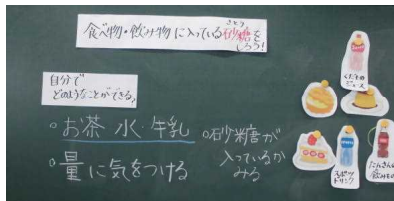 食べ物・飲み物に入っている砂糖を
さとう
しろう!
自分で
どのようなことができる?
・お茶 水・牛乳
・量に気をつける
・砂糖が
入っているか
みる
くだもの
ジュース
スポーツ
ドリンク
たんさん
飲みもの